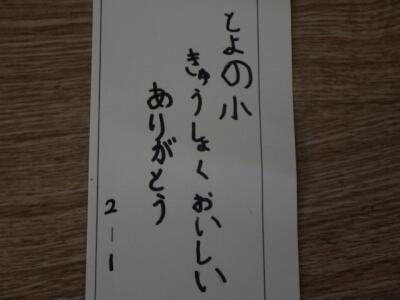 とよの小
きゅうしょくおいしい
ありがとう
2-1